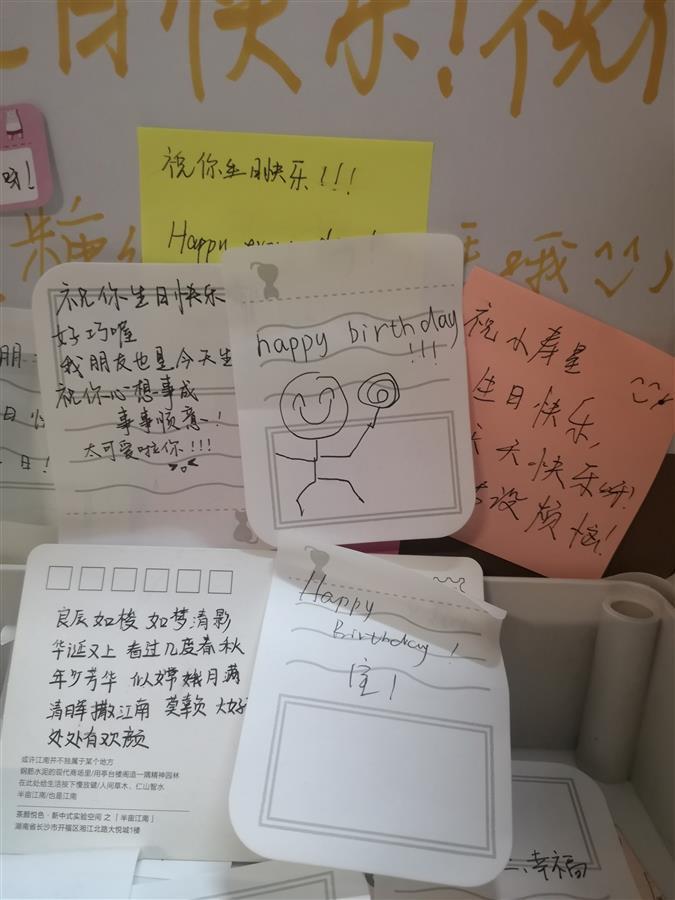 生日快乐!祝
呀!
祝你生日快乐!!!
Happy
祝你生日快乐
好巧喔
我朋友也是今天生
祝你心想事成
事事顺意!
太可爱啦你!!!
happy birthday
!!!
祝小寿星
生日快乐,
天天快乐呀!
没烦恼!
朋
日快
日!
良辰如梭 如梦清影
华诞又上 看过几度春秋
年少芳华 似嫦娥月满
清晖撒江南 莫负大好
处处有欢颜
或许江南并不独属于某个地方
钢筋水泥的现代商场里/用亭台楼阁造一隅精神园林
在此处给生活按下慢放键/人间草木、仁山智水
半亩江南/也是江南
茶颜悦色·新中式实验空间 之「半亩江南」
湖南省长沙市开福区湘江北路大悦城1楼
Happy
Birthday!
幸福